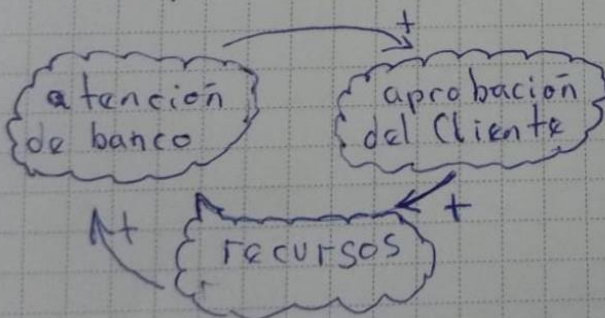 +
atención
de banco
aprobación
del Cliente
+
+
recursos